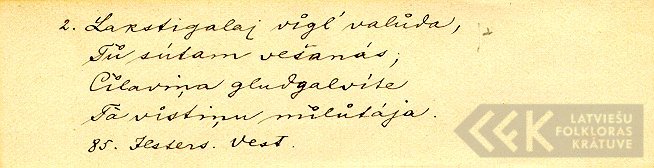 2. Lakstigalaj vĩgl' valůda,
Tů sútam vešanás;
Cĩlaviņa gludgalvíte
Tà vistiņu mĩlůtája.
85. Ilsters. Vest.
LATVIEŠU
FOLKLORAS
KRĀTUVE